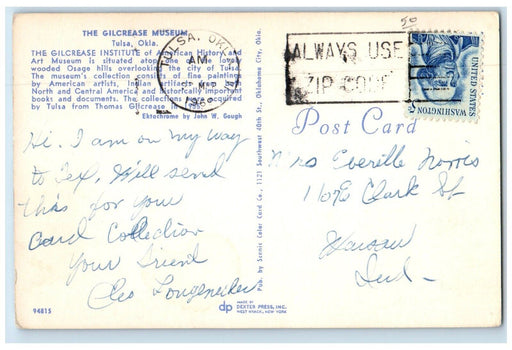 THE GILCREASE MUSEUM
Tulsa, Okla.
THE GILCREASE INSTITUTE of American History and
Art Museum is situated atop one of the lovely
wooded Osage hills overlooking the city of Tulsa.
The museum's collection consists of fine paintings
by American artists, Indian artifacts from
North and Central America and historically important
books and documents. The collection was acquired
by Tulsa from Thomas Gilcrease in
Ektachrome by John W. Gough
Hi. I am on my way
to Tex, Will send
this for your
Card Collection
Your Friend
Cleo Longenecker
94815
Pub. by Scenic Color Card Co., 1121 Southwest 40th St. Oklahoma City, Okla.
TULSA, OKLA
AM
ALWAYS USE
ZIP CODE
50
UNITED STATES
WASHINGTON
5¢
Post Card
Mrs Everille Norris
Clark St
Warsaw
Ind -
dp MADE BY
DEXTER PRESS, INC.
WEST NYACK, NEW YORK